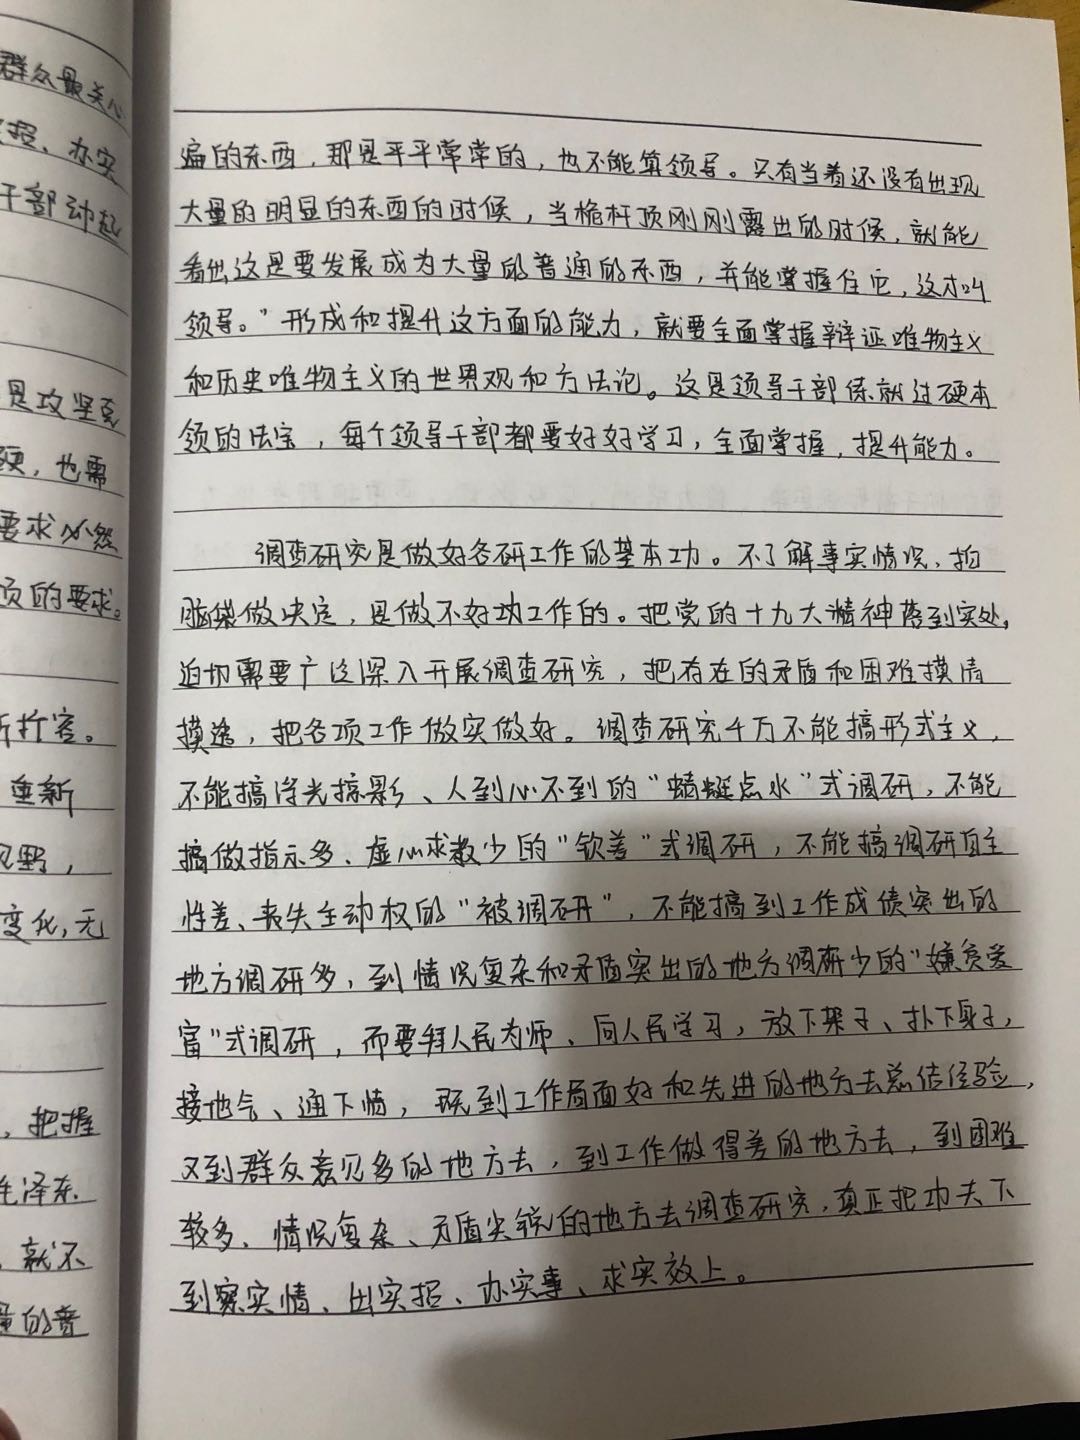 群众最关心
招、办实
干部动起
是攻坚克
硬，也需
要求必然
项的要求。
折扣客。
重新
视野，
变化，无
，把握
毛泽东
，就不
量的普
遍的东西，那是平平常常的，也不能算领导。只有当着还没有出现
大量的明显的东西的时候，当桅杆顶刚刚露出的时候，就能
看出这是要发展成为大量的普通的东西，并能掌握住它，这才叫
领导。”形成和提升这方面的能力，就要全面掌握辩证唯物主义
和历史唯物主义的世界观和方法论。这是领导干部练就过硬本
领的法宝，每个领导干部都要好好学习，全面掌握，提升能力。
调查研究是做好各研工作的基本功。不了解事实情况，拍
脑袋做决定，是做不好功工作的。把党的十九大精神落到实处，
迫切需要广泛深入开展调查研究，把存在的矛盾和困难摸清
摸透，把各项工作做实做好。调查研究千万不能搞形式主义，
不能搞浮光掠影、人到心不到的“蜻蜓点水”式调研，不能
搞做指示多、虚心求教少的“钦差”式调研，不能搞调研自主
性差、丧失主动权的“被调研”，不能搞到工作成绩突出的
地方调研多，到情况复杂和矛盾突出的地方调研少的“嫌贫爱
富”式调研，而要拜人民为师、向人民学习，放下架子、扑下身子，
接地气、通下情，既到工作局面好和先进的地方去总结经验，
又到群众意见多的地方去，到工作做得差的地方去，到困难
较多、情况复杂、矛盾尖锐的地方去调查研究，真正把功夫下
到察实情、出实招、办实事、求实效上。